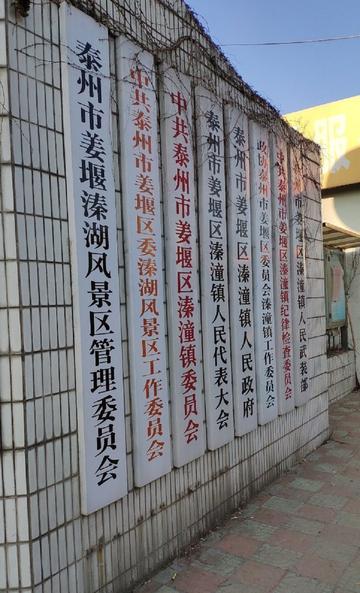 泰州市姜堰溱湖风景区管理委员会
中共泰州市姜堰区委溱湖风景区工作委员会
中共泰州市姜堰区溱潼镇委员会
泰州市姜堰区溱潼镇人民代表大会
泰州市姜堰区溱潼镇人民政府
政协泰州市姜堰区委员会溱潼镇工作委员会
中共泰州市姜堰区溱潼镇纪律检查委员会
州市姜堰区溱潼镇人民武装部
服